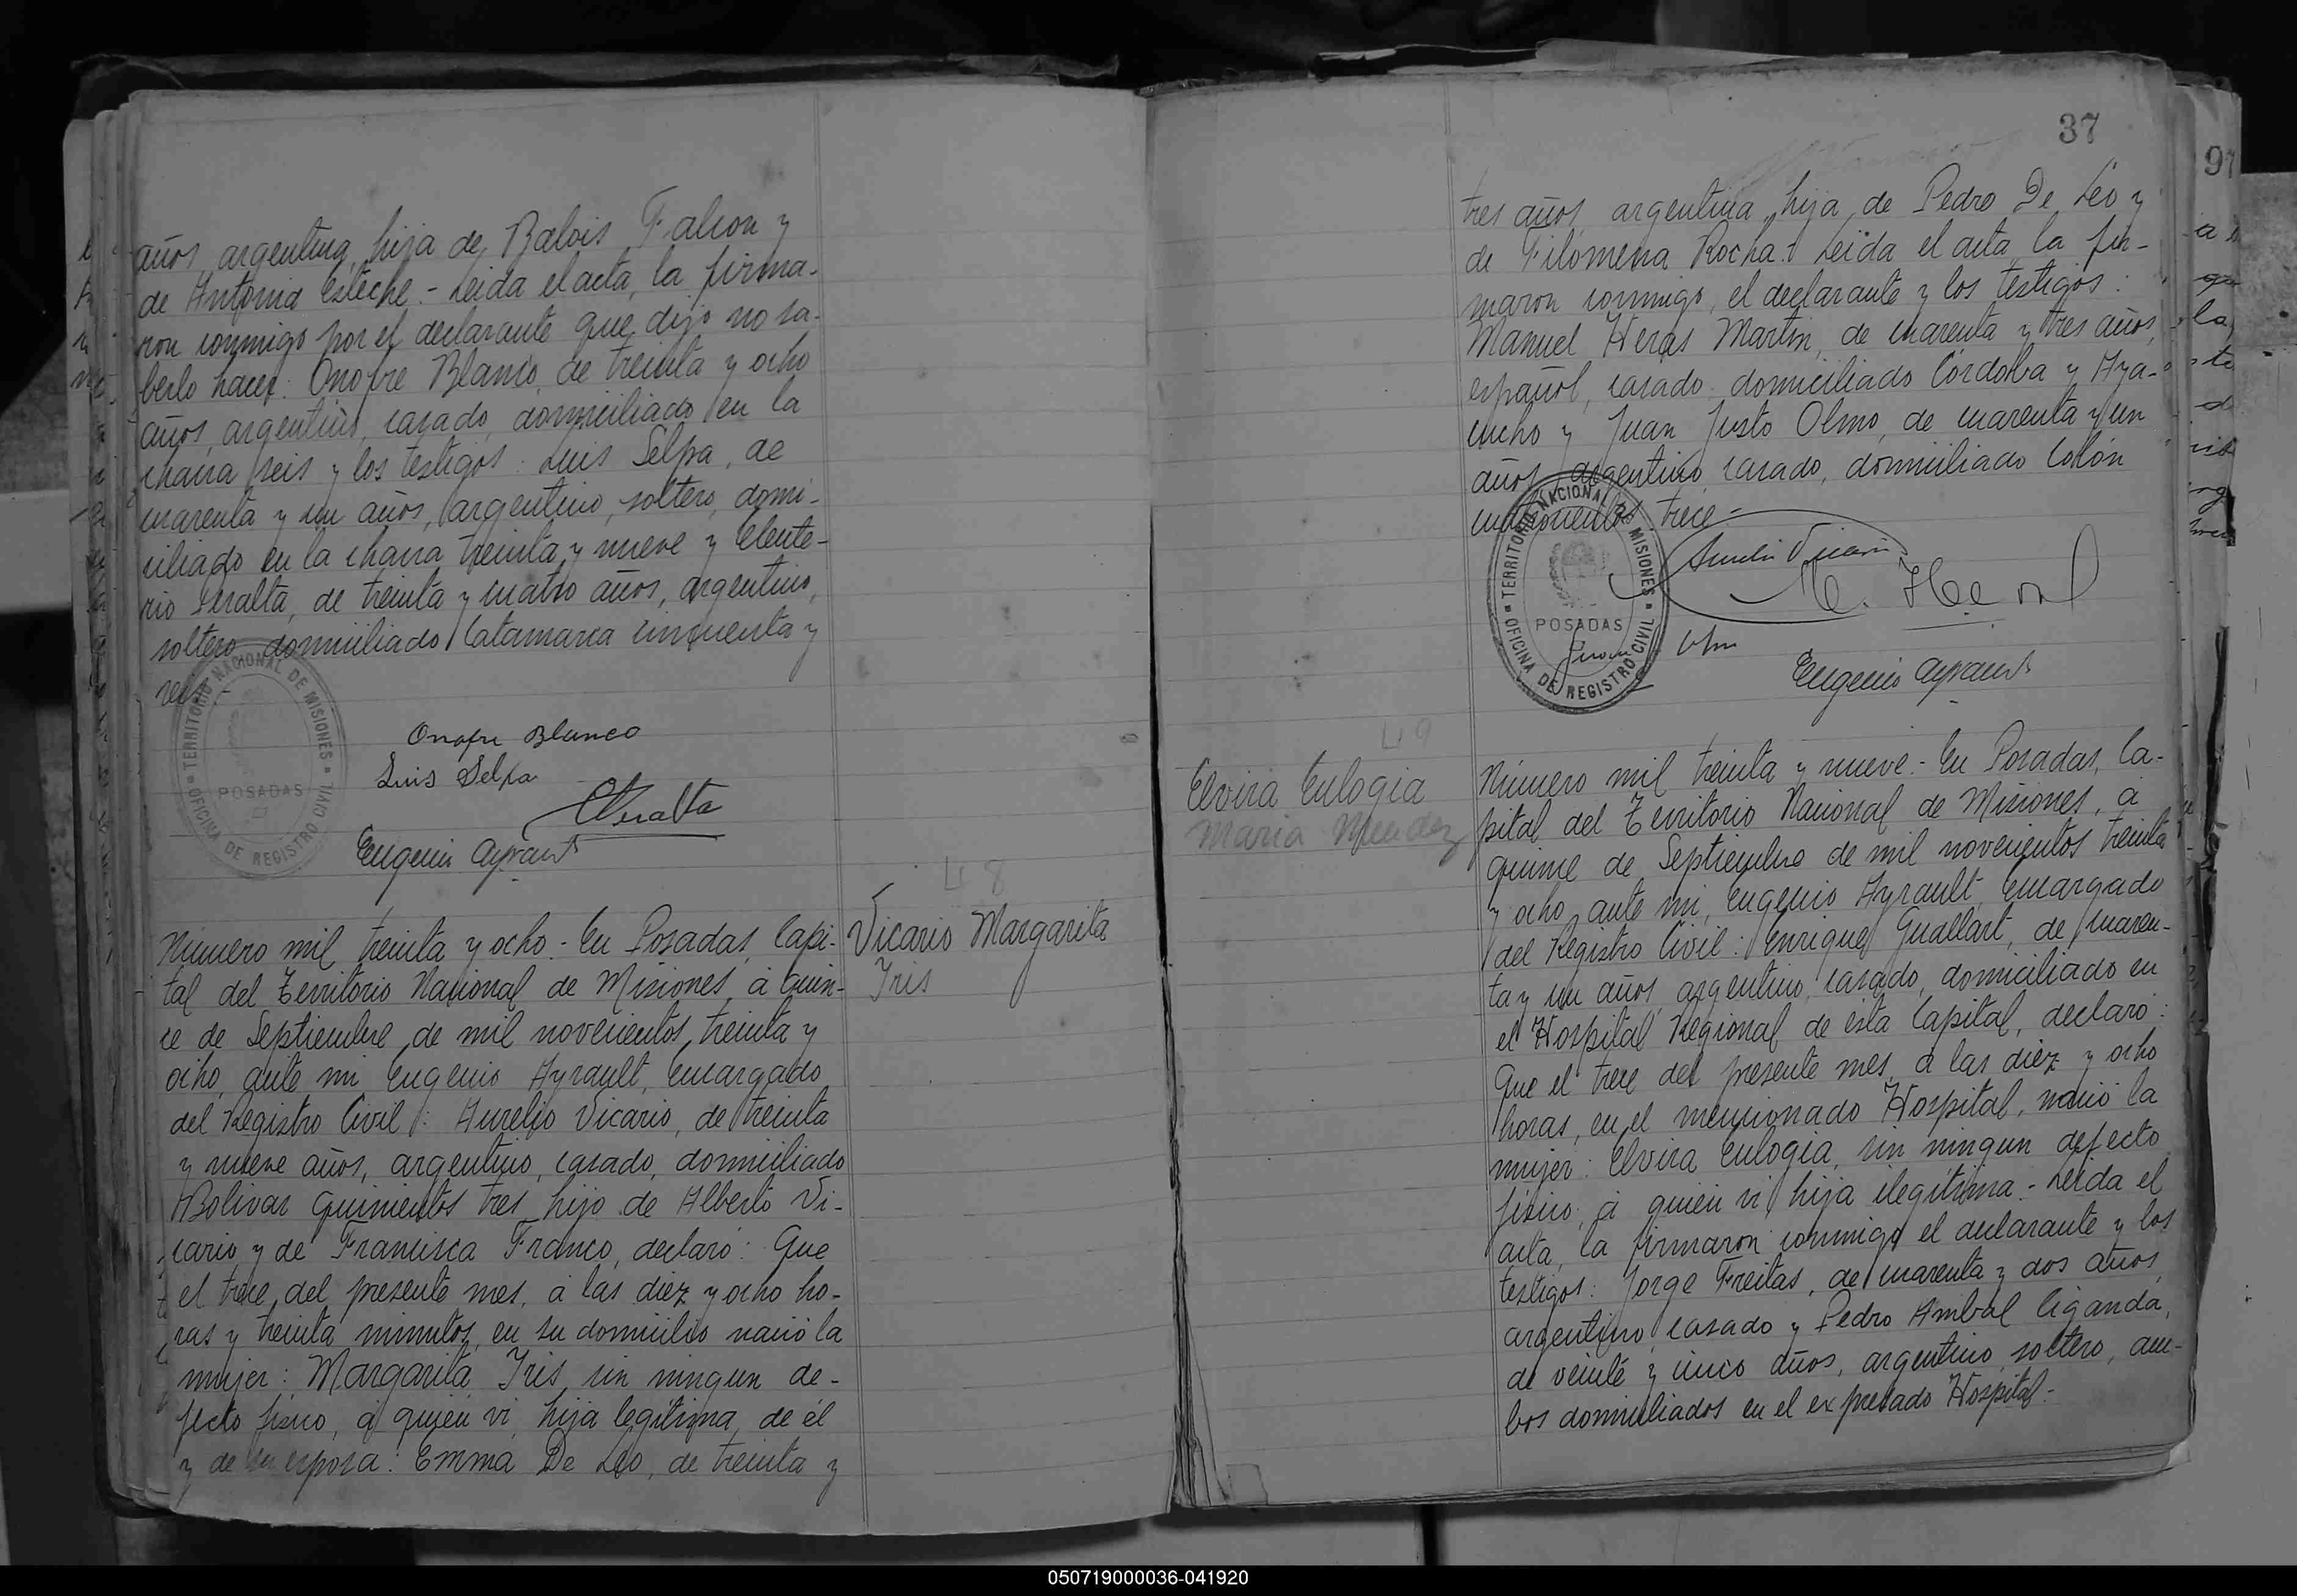 años, argentina, hija de Balois Falcon y
de Antonia Esteche.- Leida el acta, la firma-
ron conmigo por el declarante que dijo no sa-
berlo hacer: Onofre Blanco, de treinta y ocho
años, argentino, casado, domiciliado en la
chacra seis y los testigos: Luis Selpa, de
cuarenta y un años, argentino, soltero, domi-
ciliado en la chacra treinta y nueve y Eleute-
rio Peralta, de treinta y cuatro años, argentino,
soltero, domiciliado Catamarca cincuenta y
seis.-
TERRITORIO NACIONAL DE MISIONES
POSADAS
OFICINA DE REGISTRO CIVIL
Onofre Blanco
Luis Selpa
EPeralta
Eugenio Ayrault
48
Vicario Margarita
Iris
Número mil treinta y ocho.- En Posadas, Capi-
tal del Territorio Nacional de Misiones, á quin-
ce de Septiembre de mil novecientos treinta y
ocho, ante mi, Eugenio Ayrault, Encargado
del Registro Civil: Aurelio Vicario, de treinta
y nueve años, argentino, casado, domiciliado
Bolivar quinientos tres, hijo de Alberto Vi-
cario y de Francisca Franco, declaró: Que
el trece del presente mes, á las diez y ocho ho-
ras y treinta minutos, en su domicilio nació la
mujer: Margarita Iris, sin ningun de-
fecto fisico, á quien vi, hija legítima de él
y de su esposa: Emma De Léo, de treinta y
37
tres años, argentina, hija de Pedro De Léo y
de Filomena Rocha.- Leida el acta, la fir-
maron conmigo, el declarante y los testigos:
Manuel Heras Martin, de cuarenta y tres años,
español, casado, domiciliado Córdoba y Aya-
cucho y Juan Justo Olmo, de cuarenta y un
años, argentino, casado, domiciliado Colón
cuatrocientos trece.-
TERRITORIO NACIONAL DE MISIONES
POSADAS
OFICINA DE REGISTRO CIVIL
Aurelio Vicario
M. Heras
Juan Olmo
Eugenio Ayrault
49
Elvira Eulogia
Maria Mendez
Número mil treinta y nueve.- En Posadas, Ca-
pital del Territorio Nacional de Misiones, á
quince de Septiembre de mil novecientos treinta
y ocho, ante mi, Eugenio Ayrault, Encargado
del Registro Civil: Enrique Guallart, de cuaren-
ta y un años, argentino, casado, domiciliado en
el Hospital Regional de esta Capital, declaró:
Que el trece del presente mes, á las diez y ocho
horas, en el mencionado Hospital, nació la
mujer: Elvira Eulogia, sin ningun defecto
fisico, á quien vi, hija ilegitima.- Leida el
acta, la firmaron conmigo el declarante y los
testigos: Jorge Freitas, de cuarenta y dos años,
argentino, casado y Pedro Anibal Ciganda,
de veinte y cinco años, argentino, soltero, am-
bos domiciliados en el expresado Hospital.-
050719000036-041920